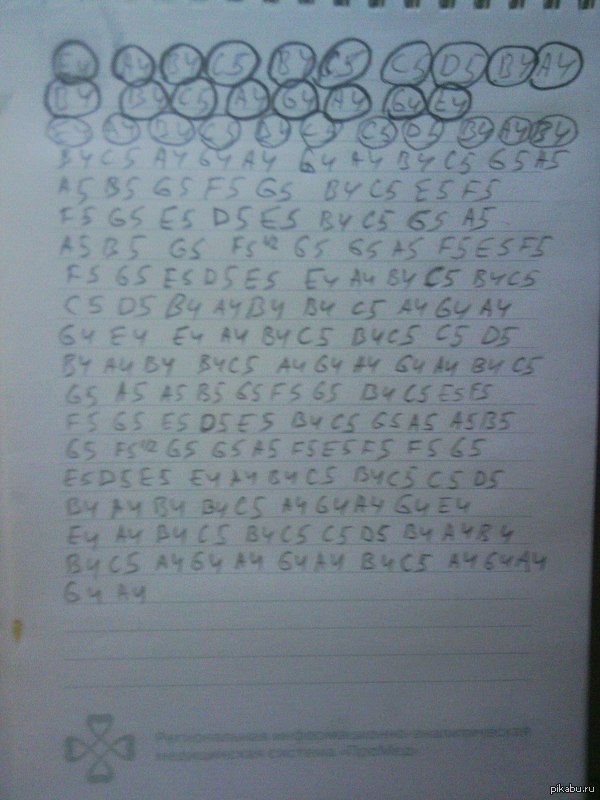 E4 A4 B4 C5 B4 C5 C5 D5 B4 A4
B4 B4 C5 A4 G4 A4 G4 E4
E4 A4 B4 C5 B4 C5 C5 D5 B4 A4 B4
B4 C5 A4 G4 A4 G4 A4 B4 C5 G5 A5
A5 B5 G5 F5 G5 B4 C5 E5 F5
F5 G5 E5 D5 E5 B4 C5 G5 A5
A5 B5 G5 F5 1/2 G5 G5 A5 F5 E5 F5
F5 G5 E5 D5 E5 E4 A4 B4 C5 B4 C5
C5 D5 B4 A4 B4 B4 C5 A4 G4 A4
G4 E4 E4 A4 B4 C5 B4 C5 C5 D5
B4 A4 B4 B4 C5 A4 G4 A4 G4 A4 B4 C5
G5 A5 A5 B5 G5 F5 G5 B4 C5 E5 F5
F5 G5 E5 D5 E5 B4 C5 G5 A5 A5 B5
G5 F5 1/2 G5 G5 A5 F5 E5 F5 F5 G5
E5 D5 E5 E4 A4 B4 C5 B4 C5 C5 D5
B4 A4 B4 B4 C5 A4 G4 A4 G4 E4
E4 A4 B4 C5 B4 C5 C5 D5 B4 A4 B4
B4 C5 A4 G4 A4 G4 A4 B4 C5 A4 G4 A4
G4 A4
Региональная информационно-аналитическая
медицинская система «ПроМед»
pikabu.ru